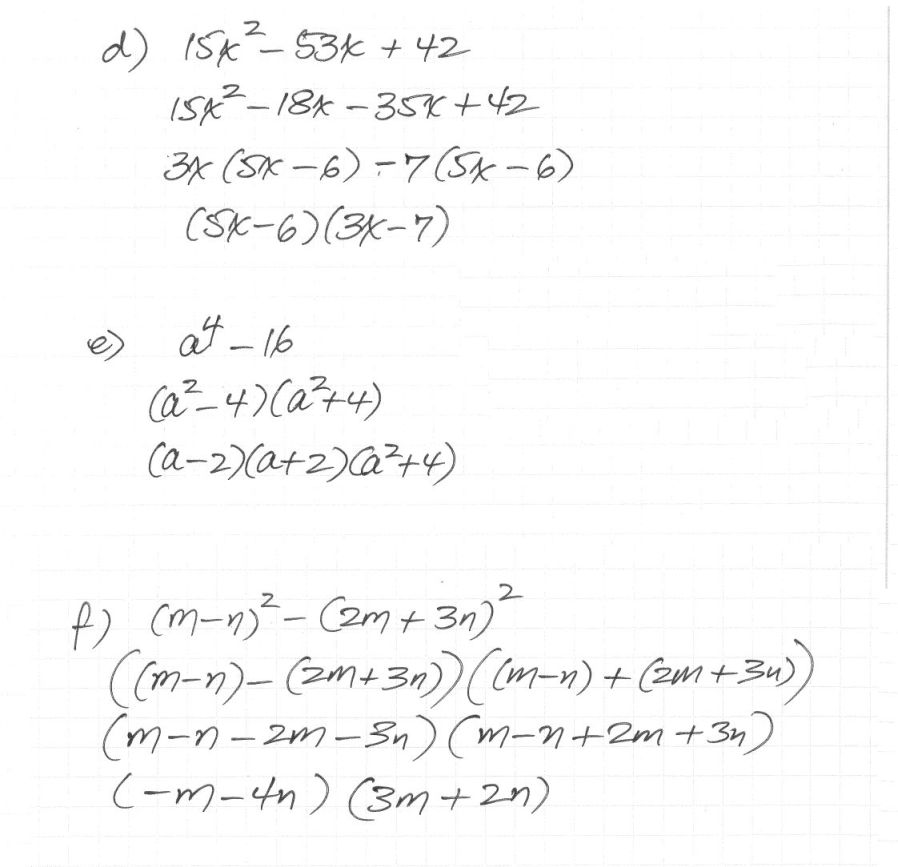 d) 15x² - 53x + 42
15x² - 18x - 35x + 42
3x (5x - 6) - 7 (5x - 6)
(5x - 6)(3x - 7)
e) a⁴ - 16
(a² - 4)(a² + 4)
(a - 2)(a + 2)(a² + 4)
f) (m - n)² - (2m + 3n)²
((m - n) - (2m + 3n))((m - n) + (2m + 3n))
(m - n - 2m - 3n)(m - n + 2m + 3n)
(-m - 4n)(3m + 2n)